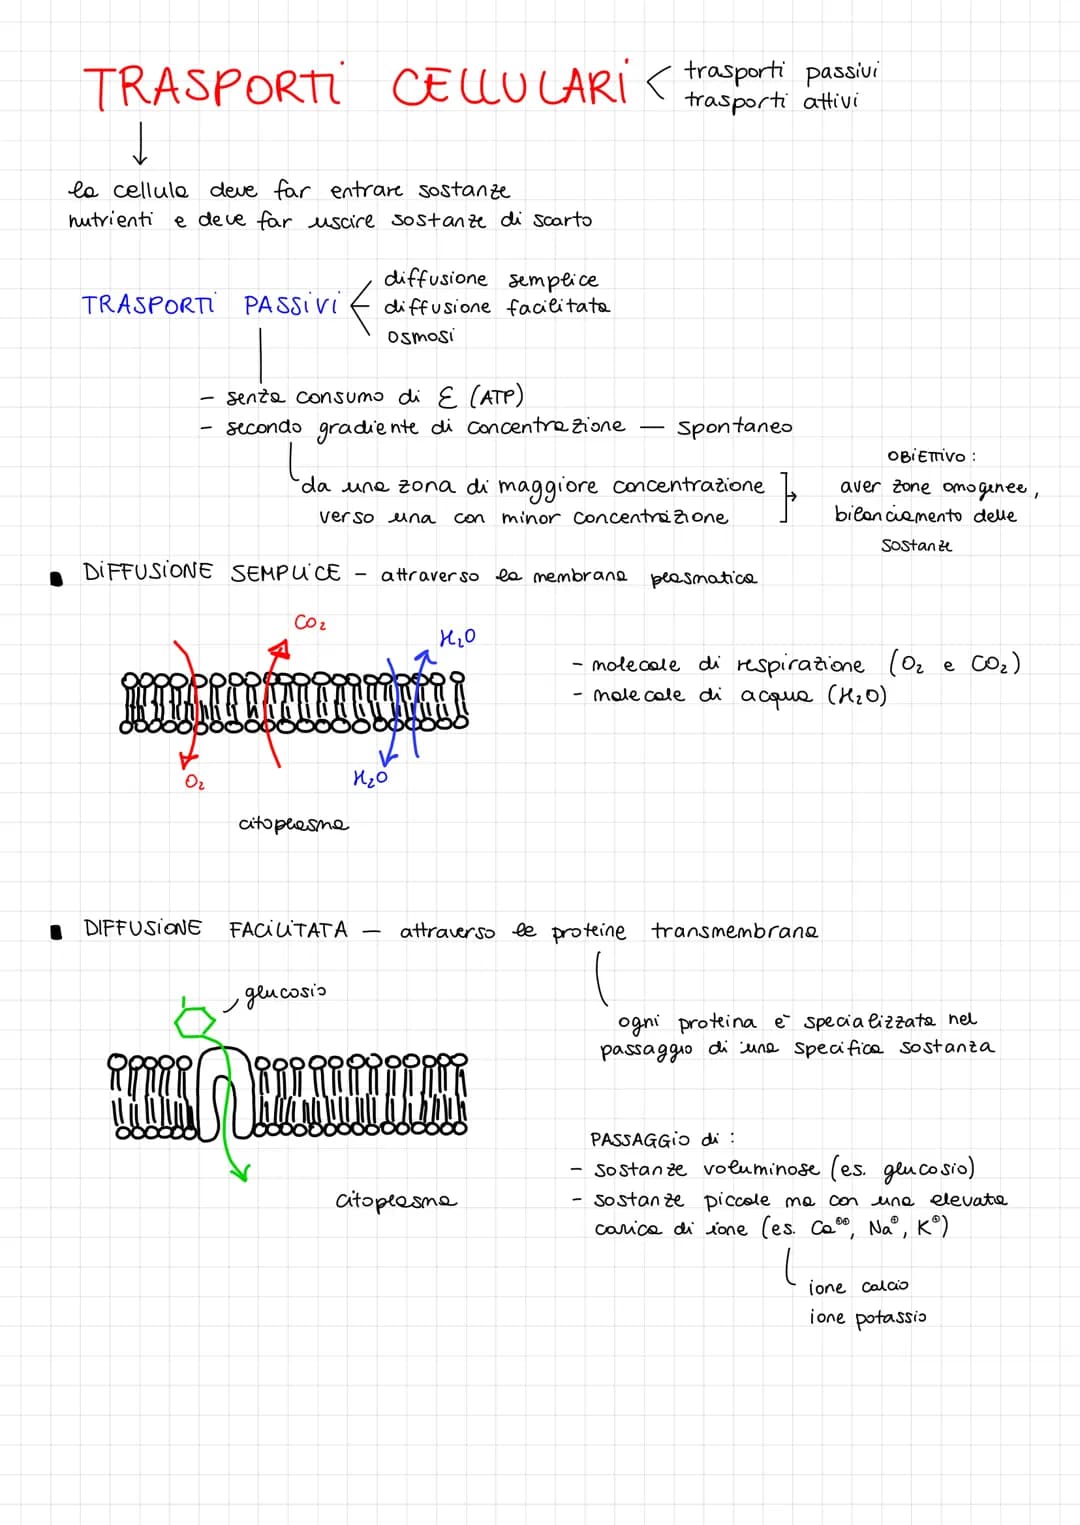 TRASPORTI CELLULARI
trasporti passivi
trasporti attivi
la cellula deve far entrare sostanze
nutrienti e deve far uscire sostanze di scarto
TRASPORTI PASSIVI
diffusione semplice
diffusione facilitata
osmosi
- senza consumo di E (ATP)
- secondo gradiente di concentrazione — spontaneo
da una zona di maggiore concentrazione
verso una con minor concentrazione
OBIETTIVO:
aver zone omogenee,
bilanciamento delle
sostanze
DIFFUSIONE SEMPLICE - attraverso la membrana plasmatica
CO₂
H₂O
- molecole di respirazione (O₂ e CO₂)
- molecole di acqua (H₂O)
O₂
H₂O
citoplasma
DIFFUSIONE FACILITATA — attraverso le proteine transmembrana
glucosio
ogni proteina è specializzata nel
passaggio di una specifica sostanza
PASSAGGIO di:
- sostanze voluminose (es. glucosio)
citoplasma
- sostanze piccole ma con una elevata
carica di ione (es. Ca⊕⊕, Na⊕, K⊕)
ione calcio
ione potassio